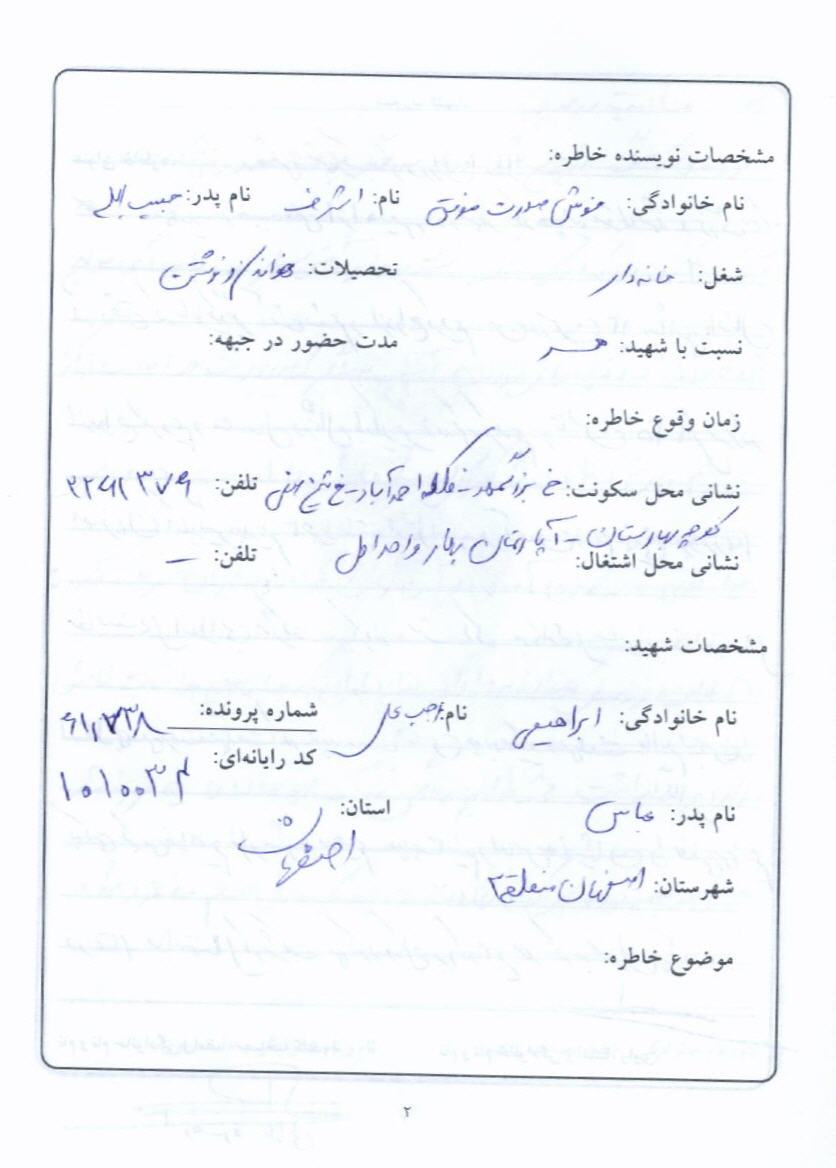 مشخصات نویسنده خاطره:
نام خانوادگی: منوش صورت منوش نام: اشرف نام پدر: حبیب اله
شغل: خانه دار تحصیلات: خواندن و نوشتن
نسبت با شهید: همسر مدت حضور در جبهه:
زمان وقوع خاطره:
نشانی محل سکونت: خ بزرگمهر - فلکه احمدآباد - خ شیخ تلفن: ۲۲۶۱۳۷۹
کوچه بهارستان - آپارتمان بهار واحد اول
نشانی محل اشتغال: تلفن: —
مشخصات شهید:
نام خانوادگی: ابراهیمی نام: رجب علی شماره پرونده:
کد رایانه‌ای: ۱۰۱۰۰۳۴
نام پدر: عباس استان: اصفهان
شهرستان: اصفهان منطقه ۳
موضوع خاطره:
۲